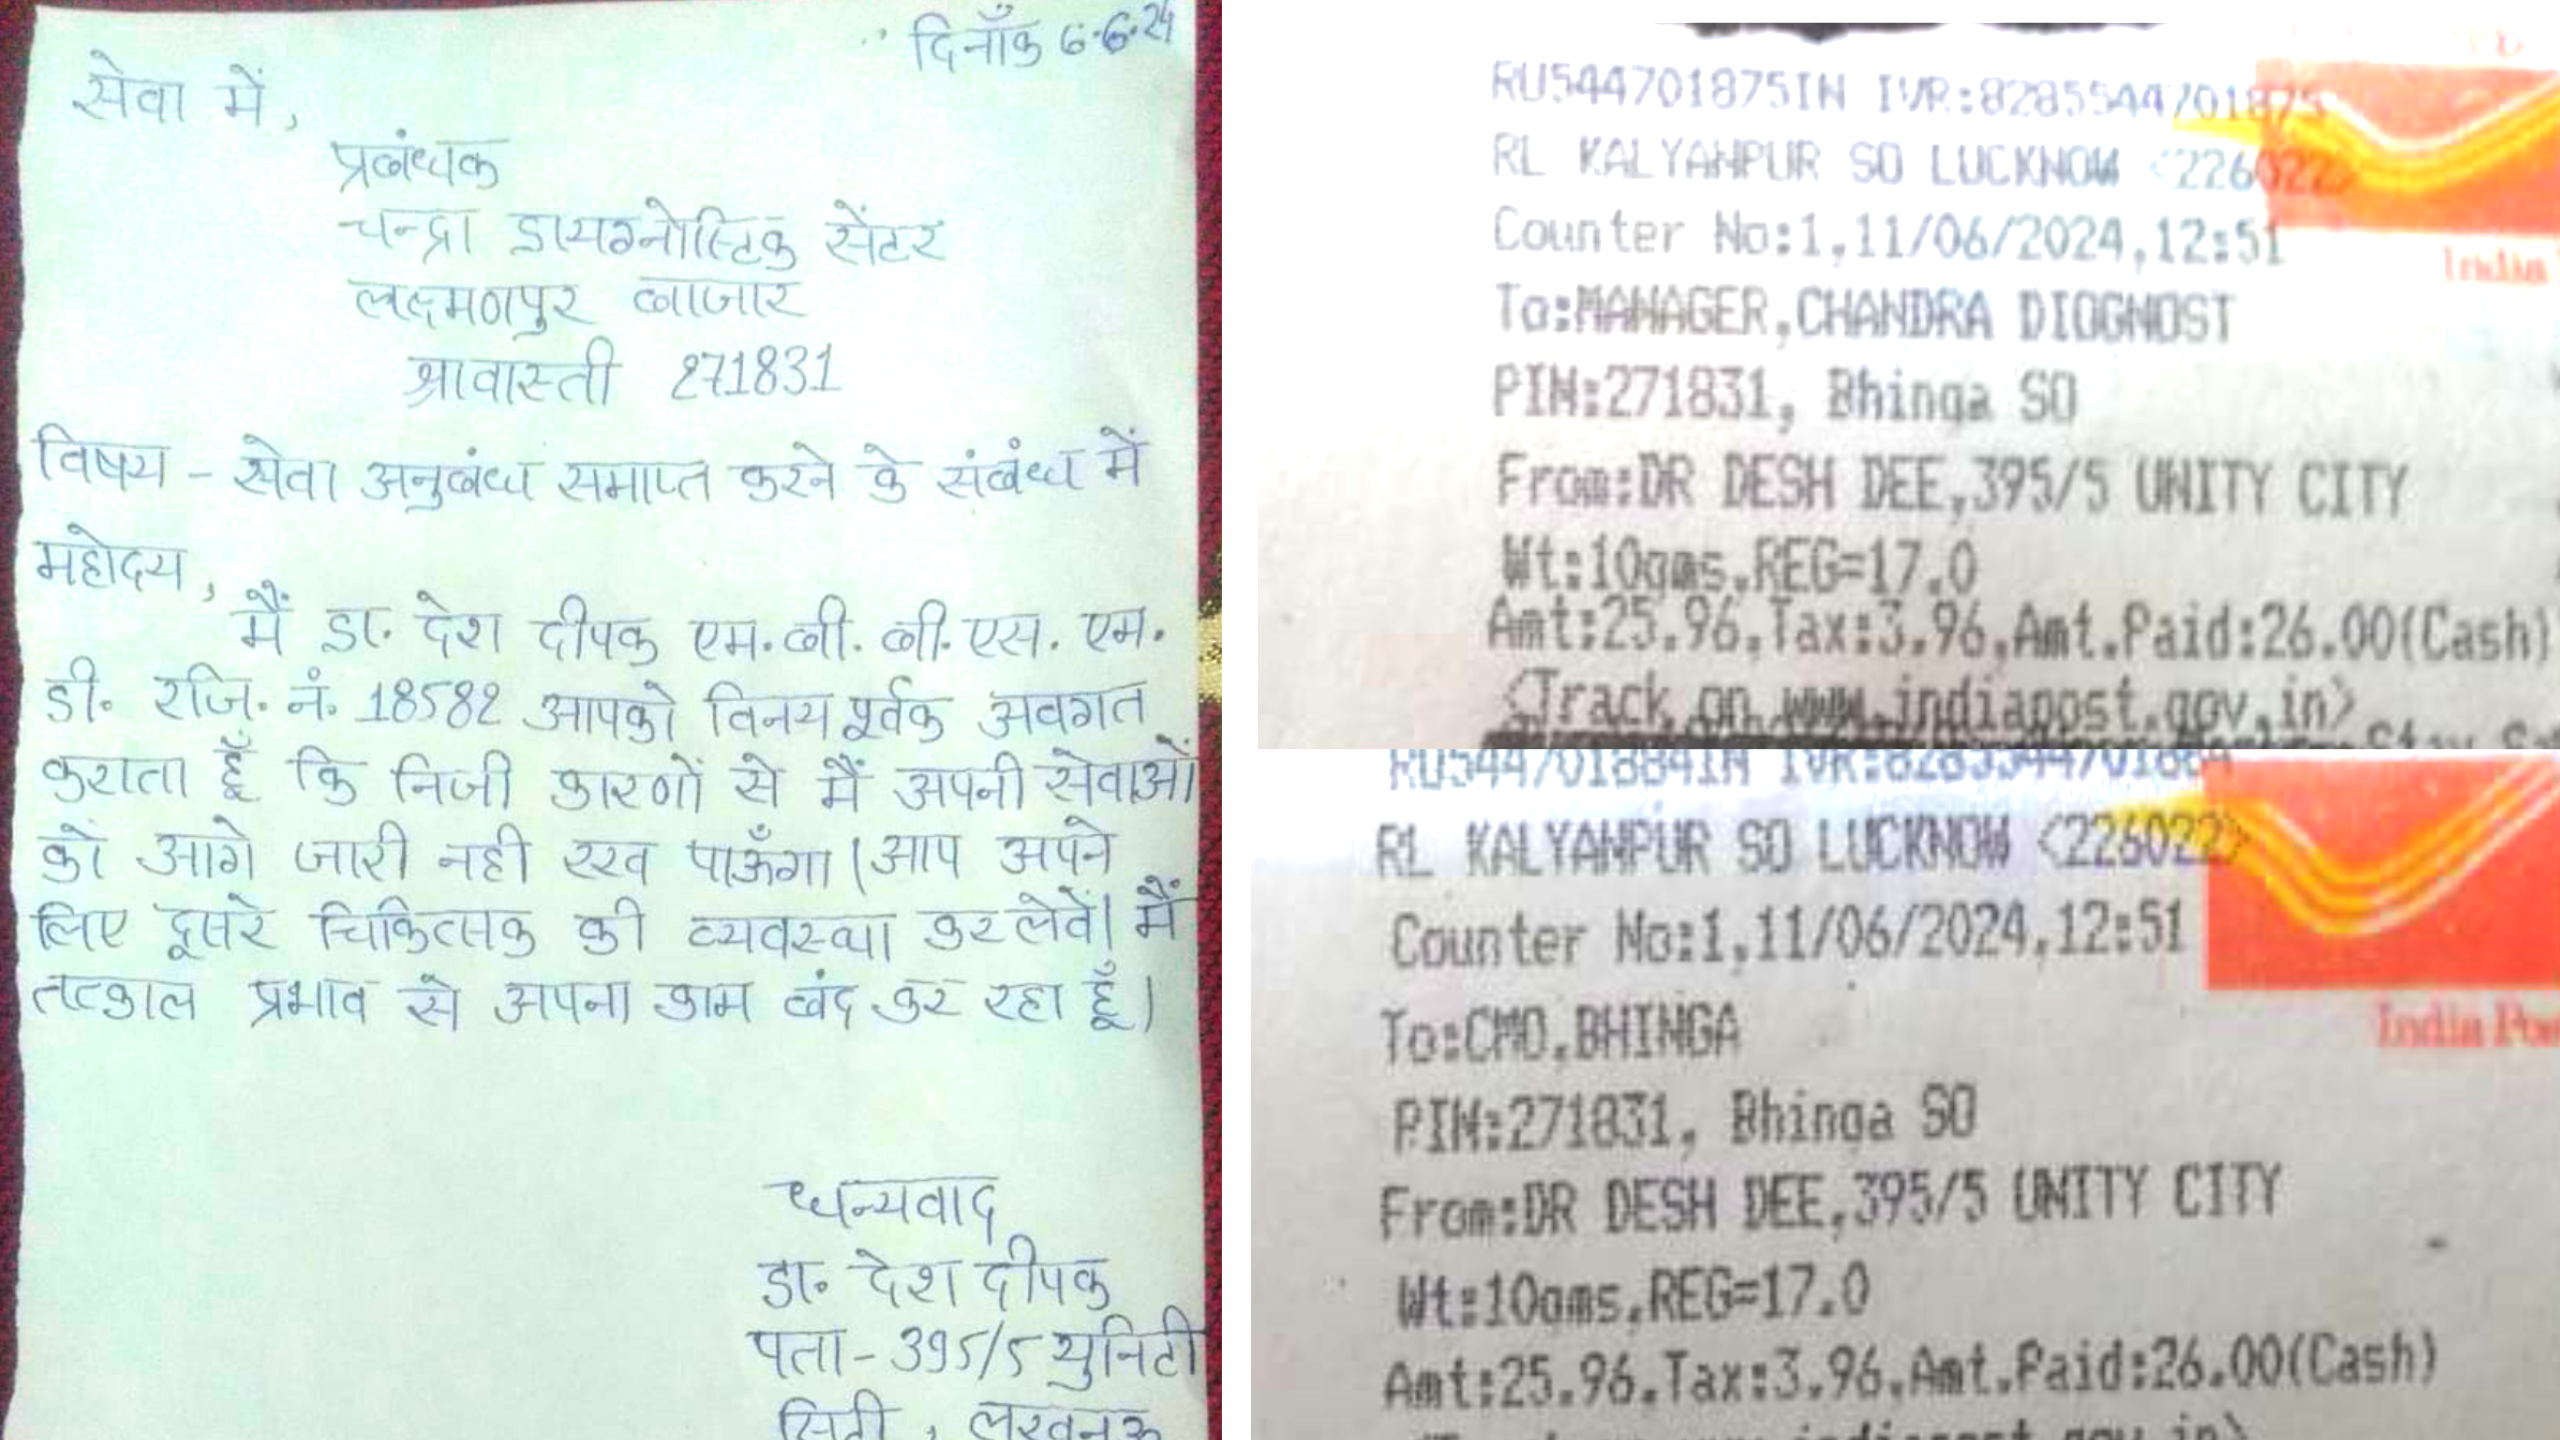 दिनाँक 6.6.24
सेवा में,
प्रबंधक
चन्द्रा डायग्नोस्टिक सेंटर
लक्ष्मणपुर बाजार
श्रावास्ती 271831
विषय - सेवा अनुबंध समाप्त करने के संबंध में
महोदय,
मैं डा. देश दीपक एम. बी. बी. एस. एम.
डी. रजि. नं. 18582 आपको विनय पूर्वक अवगत
कराता हूँ कि निजी कारणों से मैं अपनी सेवाओं
को आगे जारी नही रख पाऊँगा। आप अपने
लिए दूसरे चिकित्सक की व्यवस्था कर लेवें। मैं
तत्काल प्रभाव से अपना काम बंद कर रहा हूँ।
धन्यवाद
डा. देश दीपक
पता - 395/5 युनिटी
सिटी, लखनऊ
RU544701875IN IVR:8285544701875
RL KALYANPUR SO LUCKNOW <226022>
Counter No:1,11/06/2024,12:51
To:MANAGER,CHANDRA DIOGNOST
PIN:271831, Bhinga SO
From:DR DESH DEE,395/5 UNITY CITY
Wt:10gms,REG=17.0
Amt:25.96,Tax:3.96,Amt.Paid:26.00(Cash)
<Track on www.indiapost.gov.in>
India
RU544701884IN IVR:8285544701884
RL KALYANPUR SO LUCKNOW <226022>
Counter No:1,11/06/2024,12:51
To:CMO,BHINGA
PIN:271831, Bhinga SO
From:DR DESH DEE,395/5 UNITY CITY
Wt:10gms,REG=17.0
Amt:25.96,Tax:3.96,Amt.Paid:26.00(Cash)
India